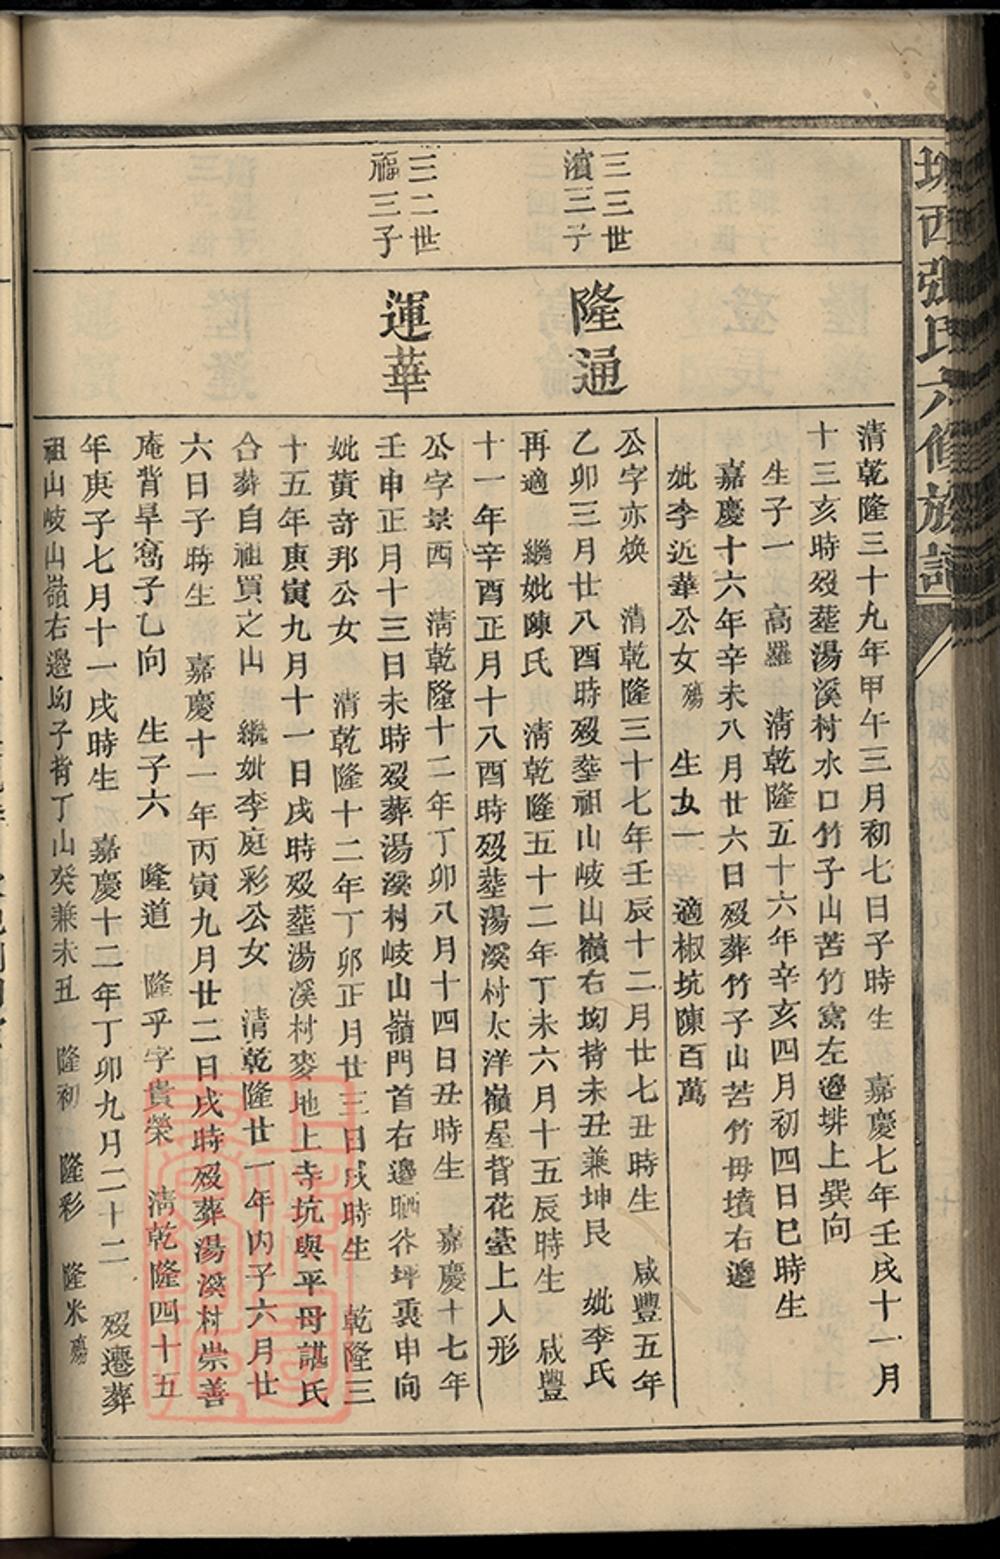 西張氏六修族譜
清乾隆三十九年甲午三月初七日子時生　嘉慶七年壬戌十一月
十三亥時歿塟湯溪村水口竹子山苦竹窩左邊排上巽向
生子一　高羅　清乾隆五十六年辛亥四月初四日巳時生
嘉慶十六年辛未八月廿六日歿葬竹子山苦竹毋墳右邊
妣李近華公女殤　生女一　適椒坑陳百萬
三三世
濱三子
隆通
公字亦煥　清乾隆三十七年壬辰十二月廿七丑時生　咸豐五年
乙卯三月廿八酉時歿塟祖山岐山嶺右坳背未丑兼坤艮　妣李氏
再適　繼妣陳氏　清乾隆五十二年丁未六月十五辰時生　咸豐
十一年辛酉正月十八酉時歿塟湯溪村太洋嶺屋背花臺上人形
三二世
福三子
運華
公字景西　清乾隆十二年丁卯八月十四日丑時生　嘉慶十七年
壬申正月十三日未時歿葬湯溪村岐山嶺門首右邊晒谷坪裏申向
妣黃奇邦公女　清乾隆十二年丁卯正月廿三日戌時生　乾隆三
十五年庚寅九月十一日戌時歿塟湯溪村麥地上寺坑與平母諶氏
合葬自祖買之山　繼妣李庭彩公女　清乾隆廿一年丙子六月廿
六日子時生　嘉慶十一年丙寅九月廿二日戌時歿葬湯溪村崇善
庵背旱窩子乙向　生子六　隆道　隆乎字貴榮　清乾隆四十五
年庚子七月十一戌時生　嘉慶十二年丁卯九月二十二　歿遷葬
祖山岐山嶺右邊坳子背丁山癸兼未丑　隆初　隆彩　隆米殤